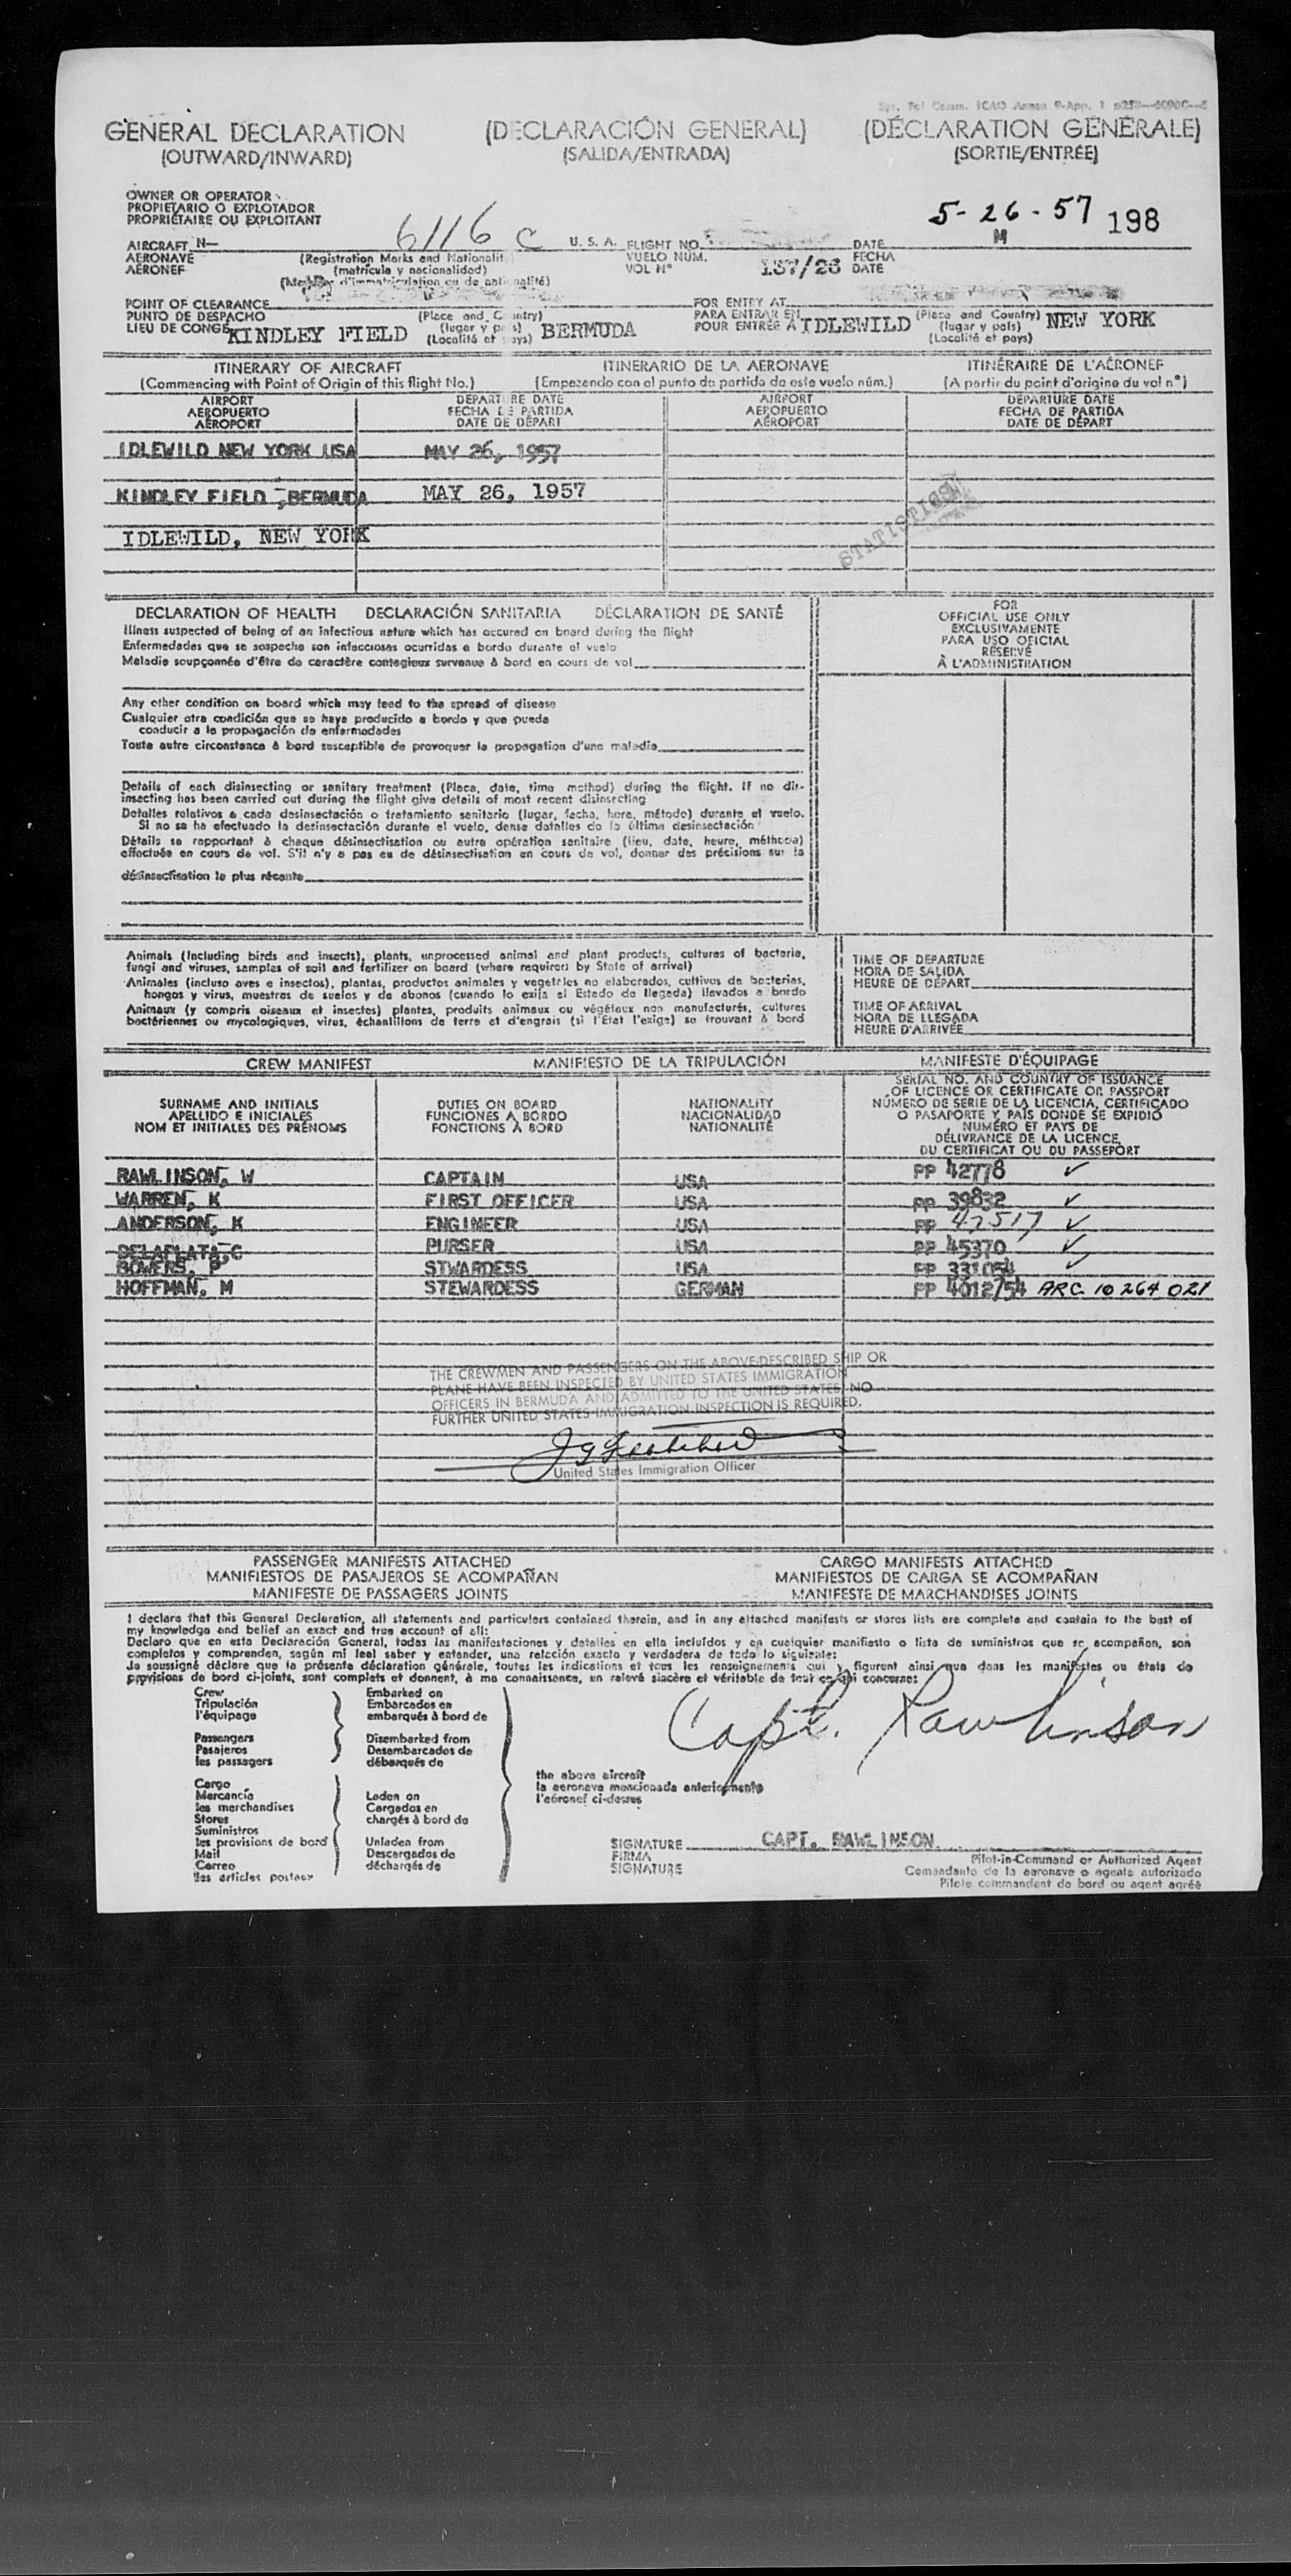 GENERAL DECLARATION (DECLARACIÓN GENERAL) (DÉCLARATION GÉNÉRALE)
(OUTWARD/INWARD) (SALIDA/ENTRADA) (SORTIE/ENTRÉE)
OWNER OR OPERATOR
PROPIETARIO O EXPLOTADOR
PROPRIÉTAIRE OU EXPLOITANT
5-26-57 198
AIRCRAFT N— 6116 C U. S. A. FLIGHT NO. DATE M
AERONAVE (Registration Marks and Nationalit VUELO NUM. FECHA
AÉRONEF (matrícula y nacionalidad) VOL N° 157/26 DATE
d'immatriculation ou de nationalité)
POINT OF CLEARANCE FOR ENTRY AT
PUNTO DE DESPACHO (Place and Country) PARA ENTRAR EN (Place and Country)
LIEU DE CONGÉ KINDLEY FIELD (lugar y país) BERMUDA POUR ENTRÉE A IDLEWILD (lugar y país) NEW YORK
(Localité et pays) (Localité et pays)
ITINERARY OF AIRCRAFT ITINERARIO DE LA AERONAVE ITINÉRAIRE DE L'AÉRONEF
(Commencing with Point of Origin of this flight No.) (Empezando con el punto de partida de este vuelo núm.) (A partir du point d'origine du vol n°)
AIRPORT DEPARTURE DATE AIRPORT DEPARTURE DATE
AEROPUERTO FECHA DE PARTIDA AEROPUERTO FECHA DE PARTIDA
AÉROPORT DATE DE DÉPART AÉROPORT DATE DE DÉPART
IDLEWILD NEW YORK USA MAY 26, 1957
KINDLEY FIELD ,BERMUDA MAY 26, 1957
STATISTICS
IDLEWILD, NEW YORK
DECLARATION OF HEALTH DECLARACIÓN SANITARIA DÉCLARATION DE SANTÉ
Illness suspected of being of an infectious nature which has occured on board during the flight
Enfermedades que se sospecha son infecciosas ocurridas a bordo durante el vuelo
Maladie soupçonnée d'être de caractère contagieux survenue à bord en cours de vol
FOR
OFFICIAL USE ONLY
EXCLUSIVAMENTE
PARA USO OFICIAL
RÉSERVÉ
À L'ADMINISTRATION
Any other condition on board which may lead to the spread of disease
Cualquier otra condición que se haya producido a bordo y que pueda
conducir a la propagación de enfermedades
Toute autre circonstance à bord susceptible de provoquer la propagation d'une maladie
Details of each disinsecting or sanitary treatment (Place, date, time method) during the flight. If no dis-
insecting has been carried out during the flight give details of most recent disinsecting
Detalles relativos a cada desinsectación o tratamiento sanitario (lugar, fecha, hora, método) durante el vuelo.
Si no se ha efectuado la desinsectación durante el vuelo, dense detalles de la última desinsectación
Détails se rapportant à chaque désinsectisation ou autre opération sanitaire (lieu, date, heure, méthode)
effectuée en cours de vol. S'il n'y a pas eu de désinsectisation en cours de vol, donner des précisions sur la
désinsectisation le plus récente
Animals (Including birds and insects), plants, unprocessed animal and plant products, cultures of bacteria,
fungi and viruses, samples of soil and fertilizer on board (where required by State of arrival)
Animales (incluso aves e insectos), plantas, productos animales y vegetales no elaborados, cultivos de bacterias,
hongos y virus, muestras de suelos y de abonos (cuando lo exija el Estado de llegada) llevados a bordo
Animaux (y compris oiseaux et insectes) plantes, produits animaux ou végétaux non manufacturés, cultures
bactériennes ou mycologiques, virus, échantillons de terre et d'engrais (si l'État l'exige) se trouvant à bord
TIME OF DEPARTURE
HORA DE SALIDA
HEURE DE DÉPART
TIME OF ARRIVAL
HORA DE LLEGADA
HEURE D'ARRIVÉE
CREW MANIFEST MANIFIESTO DE LA TRIPULACIÓN MANIFESTE D'ÉQUIPAGE
SURNAME AND INITIALS
APELLIDO E INICIALES
NOM ET INITIALES DES PRÉNOMS
DUTIES ON BOARD
FUNCIONES A BORDO
FONCTIONS À BORD
NATIONALITY
NACIONALIDAD
NATIONALITÉ
SERIAL NO. AND COUNTRY OF ISSUANCE
OF LICENCE OR CERTIFICATE OR PASSPORT
NÚMERO DE SERIE DE LA LICENCIA, CERTIFICADO
O PASAPORTE Y PAÍS DONDE SE EXPIDIÓ
NUMÉRO ET PAYS DE
DÉLIVRANCE DE LA LICENCE,
DU CERTIFICAT OU DU PASSEPORT
RAWLINSON, W CAPTAIN USA PP 42778 ✓
WARREN, K FIRST OFFICER USA PP 39832 ✓
ANDERSON, K ENGINEER USA PP 47517 ✓
DELAPLATA,C PURSER USA PP 45370 ✓
BOWERS, P STWARDESS USA PP 331054 ✓
HOFFMAN, M STEWARDESS GERMAN PP 4012754 ARC 10 264 021
THE CREWMEN AND PASSENGERS ON THE ABOVE-DESCRIBED SHIP OR
PLANE HAVE BEEN INSPECTED BY UNITED STATES IMMIGRATION
OFFICERS IN BERMUDA AND ADMITTED TO THE UNITED STATES. NO
FURTHER UNITED STATES IMMIGRATION INSPECTION IS REQUIRED.
United States Immigration Officer
PASSENGER MANIFESTS ATTACHED CARGO MANIFESTS ATTACHED
MANIFIESTOS DE PASAJEROS SE ACOMPAÑAN MANIFIESTOS DE CARGA SE ACOMPAÑAN
MANIFESTE DE PASSAGERS JOINTS MANIFESTE DE MARCHANDISES JOINTS
I declare that this General Declaration, all statements and particulars contained therein, and in any attached manifests or stores lists are complete and contain to the best of
my knowledge and belief an exact and true account of all:
Declaro que en esta Declaración General, todas las manifestaciones y detalles en ella incluídos y en cualquier manifiesto o lista de suministros que se acompañan, son
completos y comprenden, según mi leal saber y entender, una relación exacta y verdadera de todo lo siguiente:
Je soussigné déclare que la présente déclaration générale, toutes les indications et tous les renseignements qui y figurent ainsi que dans les manifestes ou états de
provisions de bord ci-joints, sont complets et donnent, à ma connaissance, un relevé sincère et véritable de tout ce qui concerne:
Crew
Tripulación
l'équipage
Passengers
Pasajeros
les passagers
Embarked on
Embarcados en
embarqués à bord de
Disembarked from
Desembarcados de
débarqués de
Capt. Rawlinson
Cargo
Mercancía
les merchandises
Stores
Suministros
les provisions de bord
Mail
Correo
les articles postaux
Laden on
Cargados en
chargés à bord de
Unladen from
Descargados de
déchargés de
the above aircraft
la aeronave mencionada anteriormente
l'aéronef ci-dessus
SIGNATURE CAPT. RAWLINSON
FIRMA
SIGNATURE
Pilot-in-Command or Authorized Agent
Comandante de la aeronave o agente autorizado
Pilote commandant de bord ou agent agréé